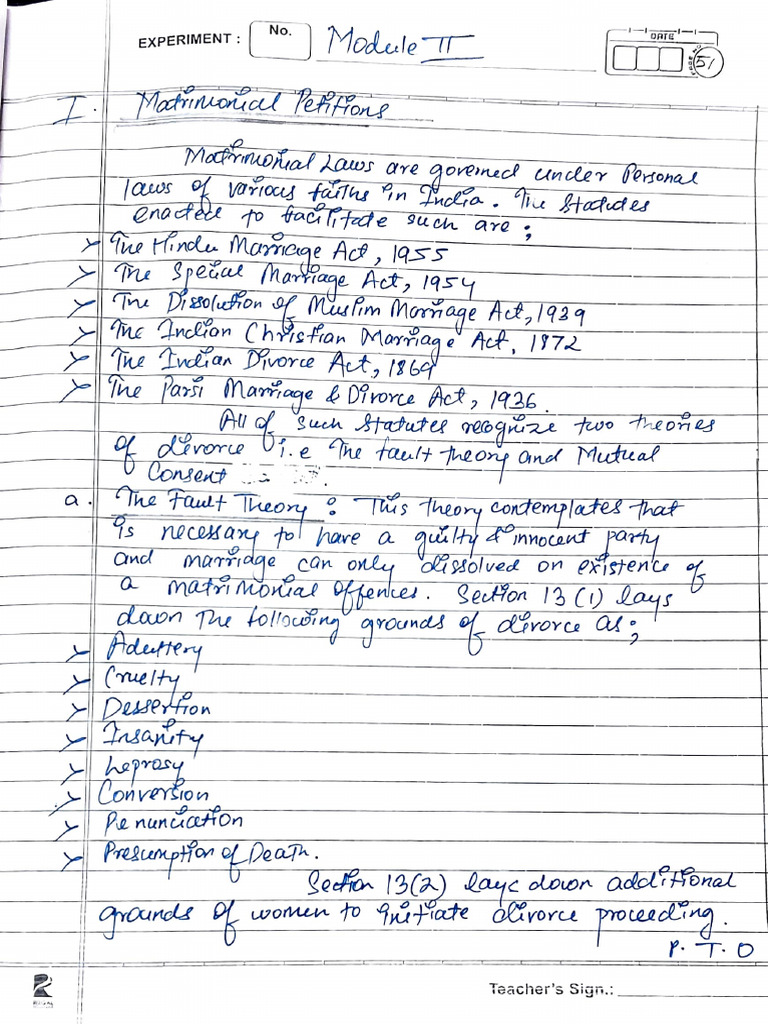 EXPERIMENT : No. Module II DATE
PAGE NO. 51
I. Matrimonial Petitions
Matrimonial Laws are governed under Personal
laws of various faiths in India. The Statutes
enacted to facilitate such are ;
➢ The Hindu Marriage Act, 1955
➢ The Special Marriage Act, 1954
➢ The Dissolution of Muslim Marriage Act, 1939
➢ The Indian Christian Marriage Act, 1872
➢ The Indian Divorce Act, 1869
➢ The Parsi Marriage & Divorce Act, 1936.
All of such statutes recognize two theories
of divorce i.e The fault theory and Mutual
Consent .
a. The Fault Theory : This theory contemplates that
is necessary to have a guilty & innocent party
and marriage can only dissolved on existence of
a matrimonial offences. Section 13 (1) lays
down The following grounds of divorce as ;
➢ Adultery
➢ Cruelty
➢ Dessertion
➢ Insanity
➢ Leprosy
➢ Conversion
➢ Renunciation
➢ Presumption of Death.
Section 13(2) lays down additional
grounds of women to initiate divorce proceeding.
P. T. O
Teacher's Sign.: